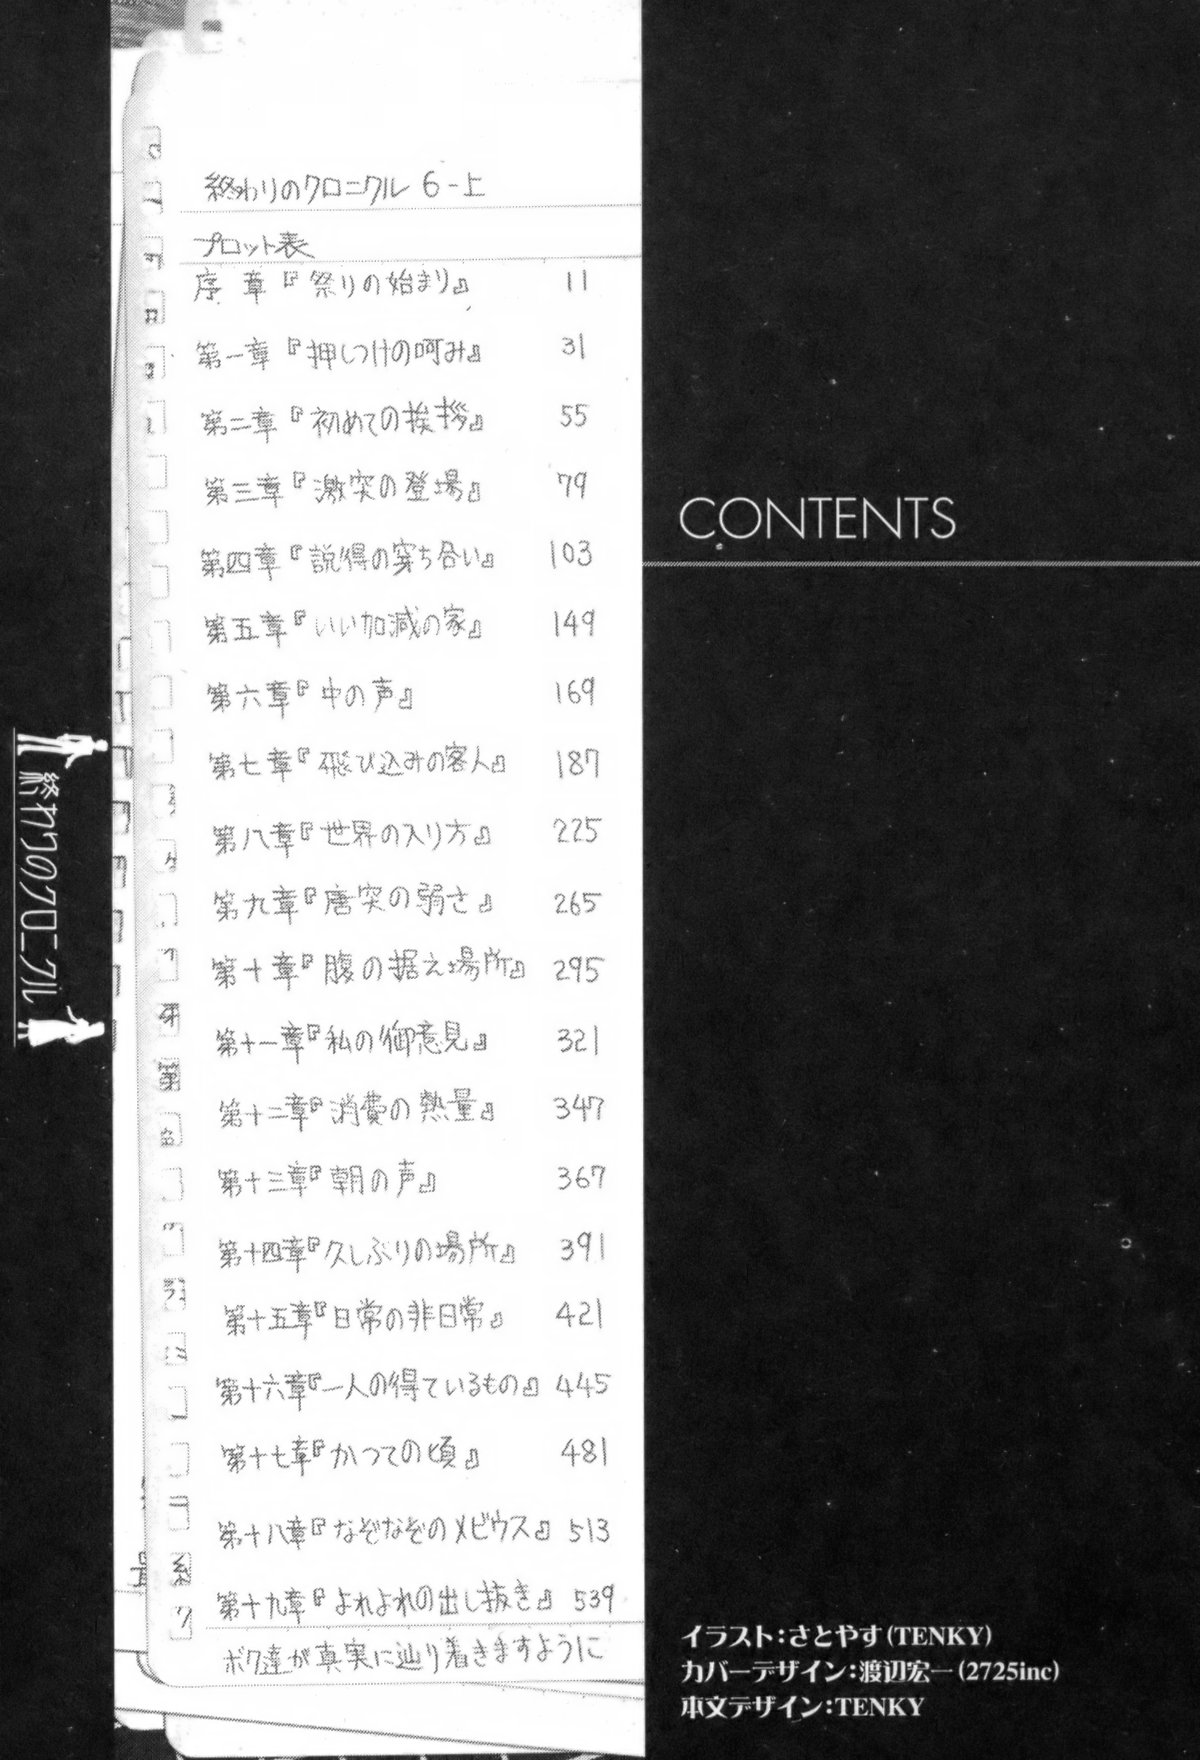 終わりのクロニクル 6-上
プロット表
序章『祭りの始まり』 11
第一章『押しつけの呵み』 31
第二章『初めての挨拶』 55
第三章『激突の登場』 79
第四章『説得の穿ち合い』 103
第五章『いい加減の家』 149
第六章『中の声』 169
第七章『飛び込みの客人』 187
第八章『世界の入り方』 225
第九章『唐突の弱さ』 265
第十章『腹の据え場所』 295
第十一章『私の御意見』 321
第十二章『消費の熱量』 347
第十三章『朝の声』 367
第十四章『久しぶりの場所』 391
第十五章『日常の非日常』 421
第十六章『一人の得ているもの』 445
第十七章『かつての頃』 481
第十八章『なぞなぞのメビウス』 513
第十九章『よれよれの出し抜き』 539
ボク達が真実に辿り着きますように
CONTENTS
イラスト:さとやす(TENKY)
カバーデザイン:渡辺宏一(2725inc)
本文デザイン:TENKY
終わりのクロニクル